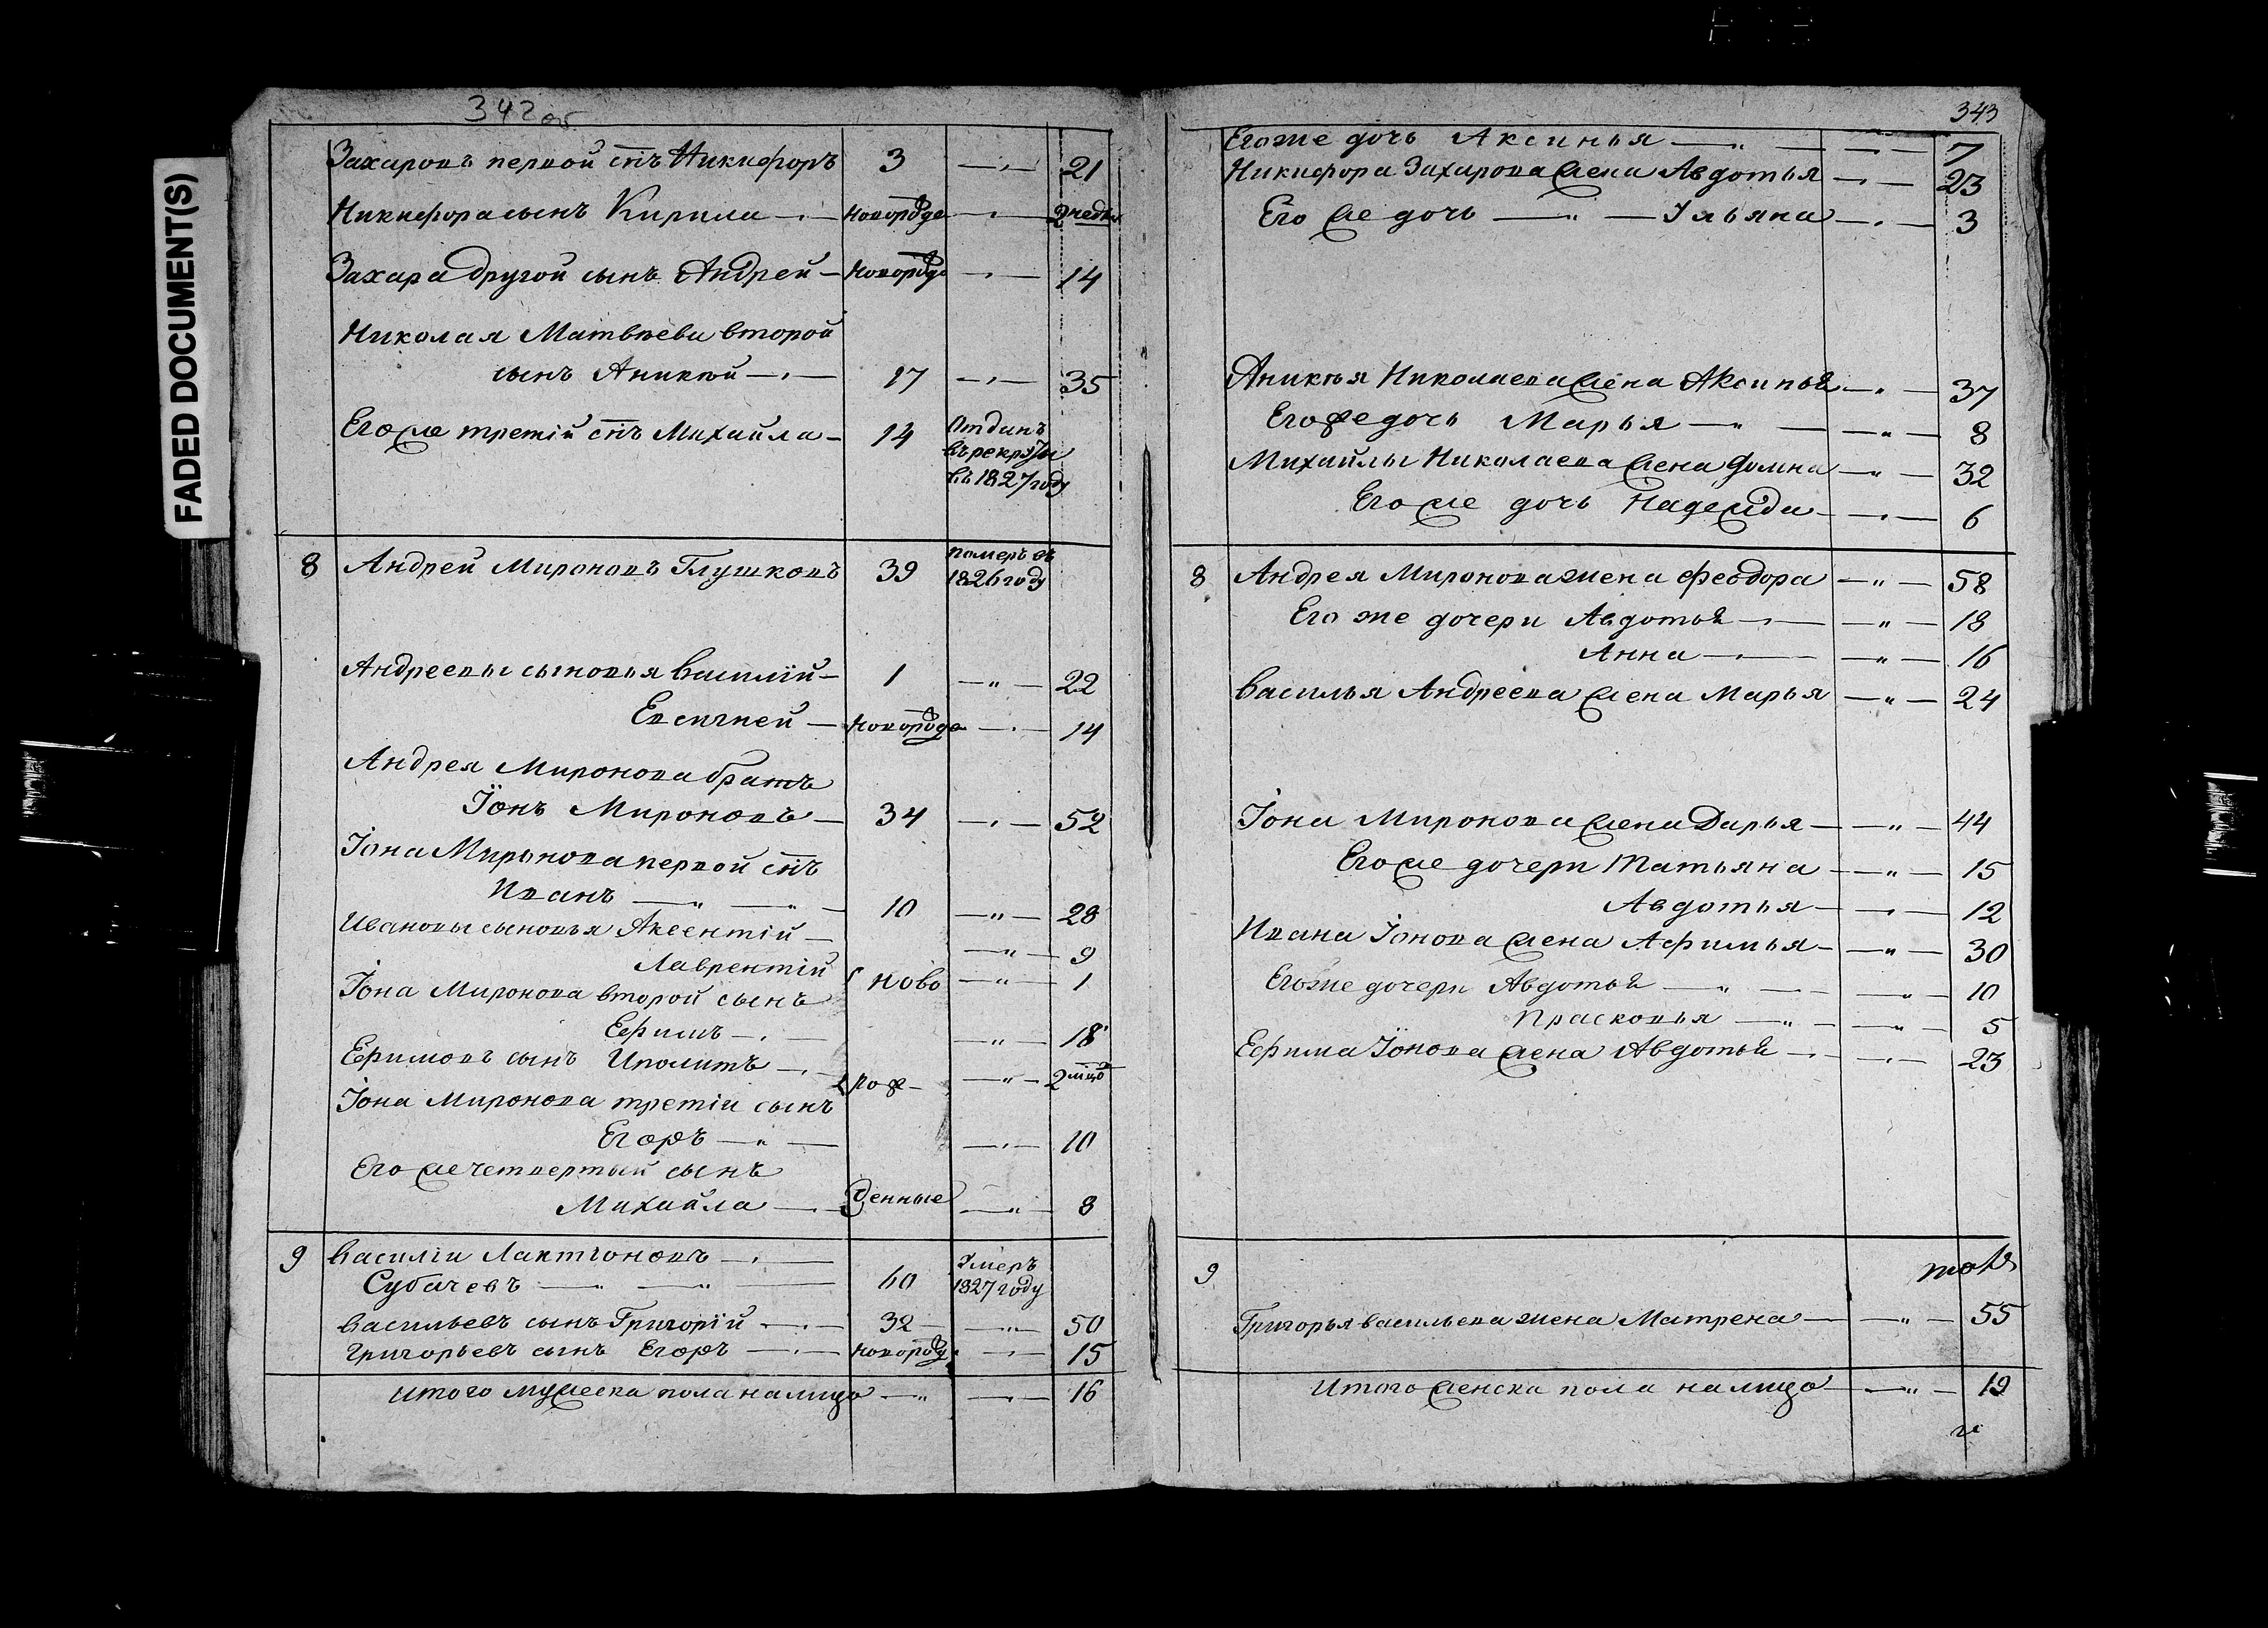 FADED DOCUMENT(S)
342об
Захаровъ первой снъ Никифоръ 3 — 21
Никифора сынъ Кирила — новорожде — 2 недел
Захара другой сынъ Андрей — новорожде — 14
Николая Матвѣева второй
сынъ Аникѣй — 17 — 35
Его же третій снъ Михайла — 14 Отданъ
въ рекруты
въ 1827 году
8 Андрей Мироновъ Глушковъ 39 померъ въ
1826 году
Андреевы сыновья Василій — 1 — 22
Евсигней — новорожде — 14
Андрея Миронова братъ
Іонъ Мироновъ — 34 — 52
Іона Миронова первой снъ
Иванъ — 10 — 28
Ивановы сыновья Аксентій — 9
Лаврентій ново — 1
Іона Миронова второй сынъ
Ефимъ — 18
Ефимовъ сынъ Иполитъ — рож — 2 мцо
Іона Миронова третій сынъ
Егоръ — 10
Его же четвертый сынъ
Михайла — денные — 8
9 Василій Лактіоновъ —
Субачевъ — 60 Умеръ
1827 году
Васильевъ сынъ Григорій — 32 — 50
Григорьевъ сынъ Егоръ — новорожд — 15
Итого мужеска пола на лицо — 16
343
Его же дочь Аксинья — 7
Никифора Захарова жена Авдотья — 23
Его же дочь — Ульяна — 3
Аникѣя Николаева жена Аксинья — 37
Его же дочь Марья — 8
Михайлы Николаева жена Домна — 32
Его же дочь Надежда — 6
8 Андрея Миронова жена Феодора — 58
Его же дочери Авдотья — 18
Анна — 16
Василья Андреева жена Марья — 24
Іона Миронова жена Дарья — 44
Его же дочери Татьяна — 15
Авдотья — 12
Ивана Іонова жена Афимья — 30
Его же дочери Авдотья — 10
Прасковья — 5
Ефима Іонова жена Авдотья — 23
9
Григорья Васильева жена Матрена — 55
Итого женска пола на лицо — 19